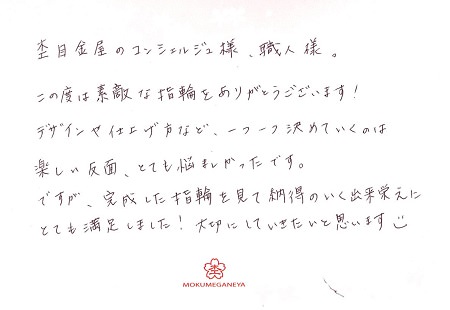 杢目金屋のコンシェルジュ様、職人様。
この度は素敵な指輪をありがとうございます！
デザインや仕上げ方など、一つ一つ決めていくのは
楽しい反面、とても悩ましかったです。
ですが、完成した指輪を見て納得のいく出来栄えに
とても満足しました！大切にしていきたいと思います
MOKUMEGANEYA